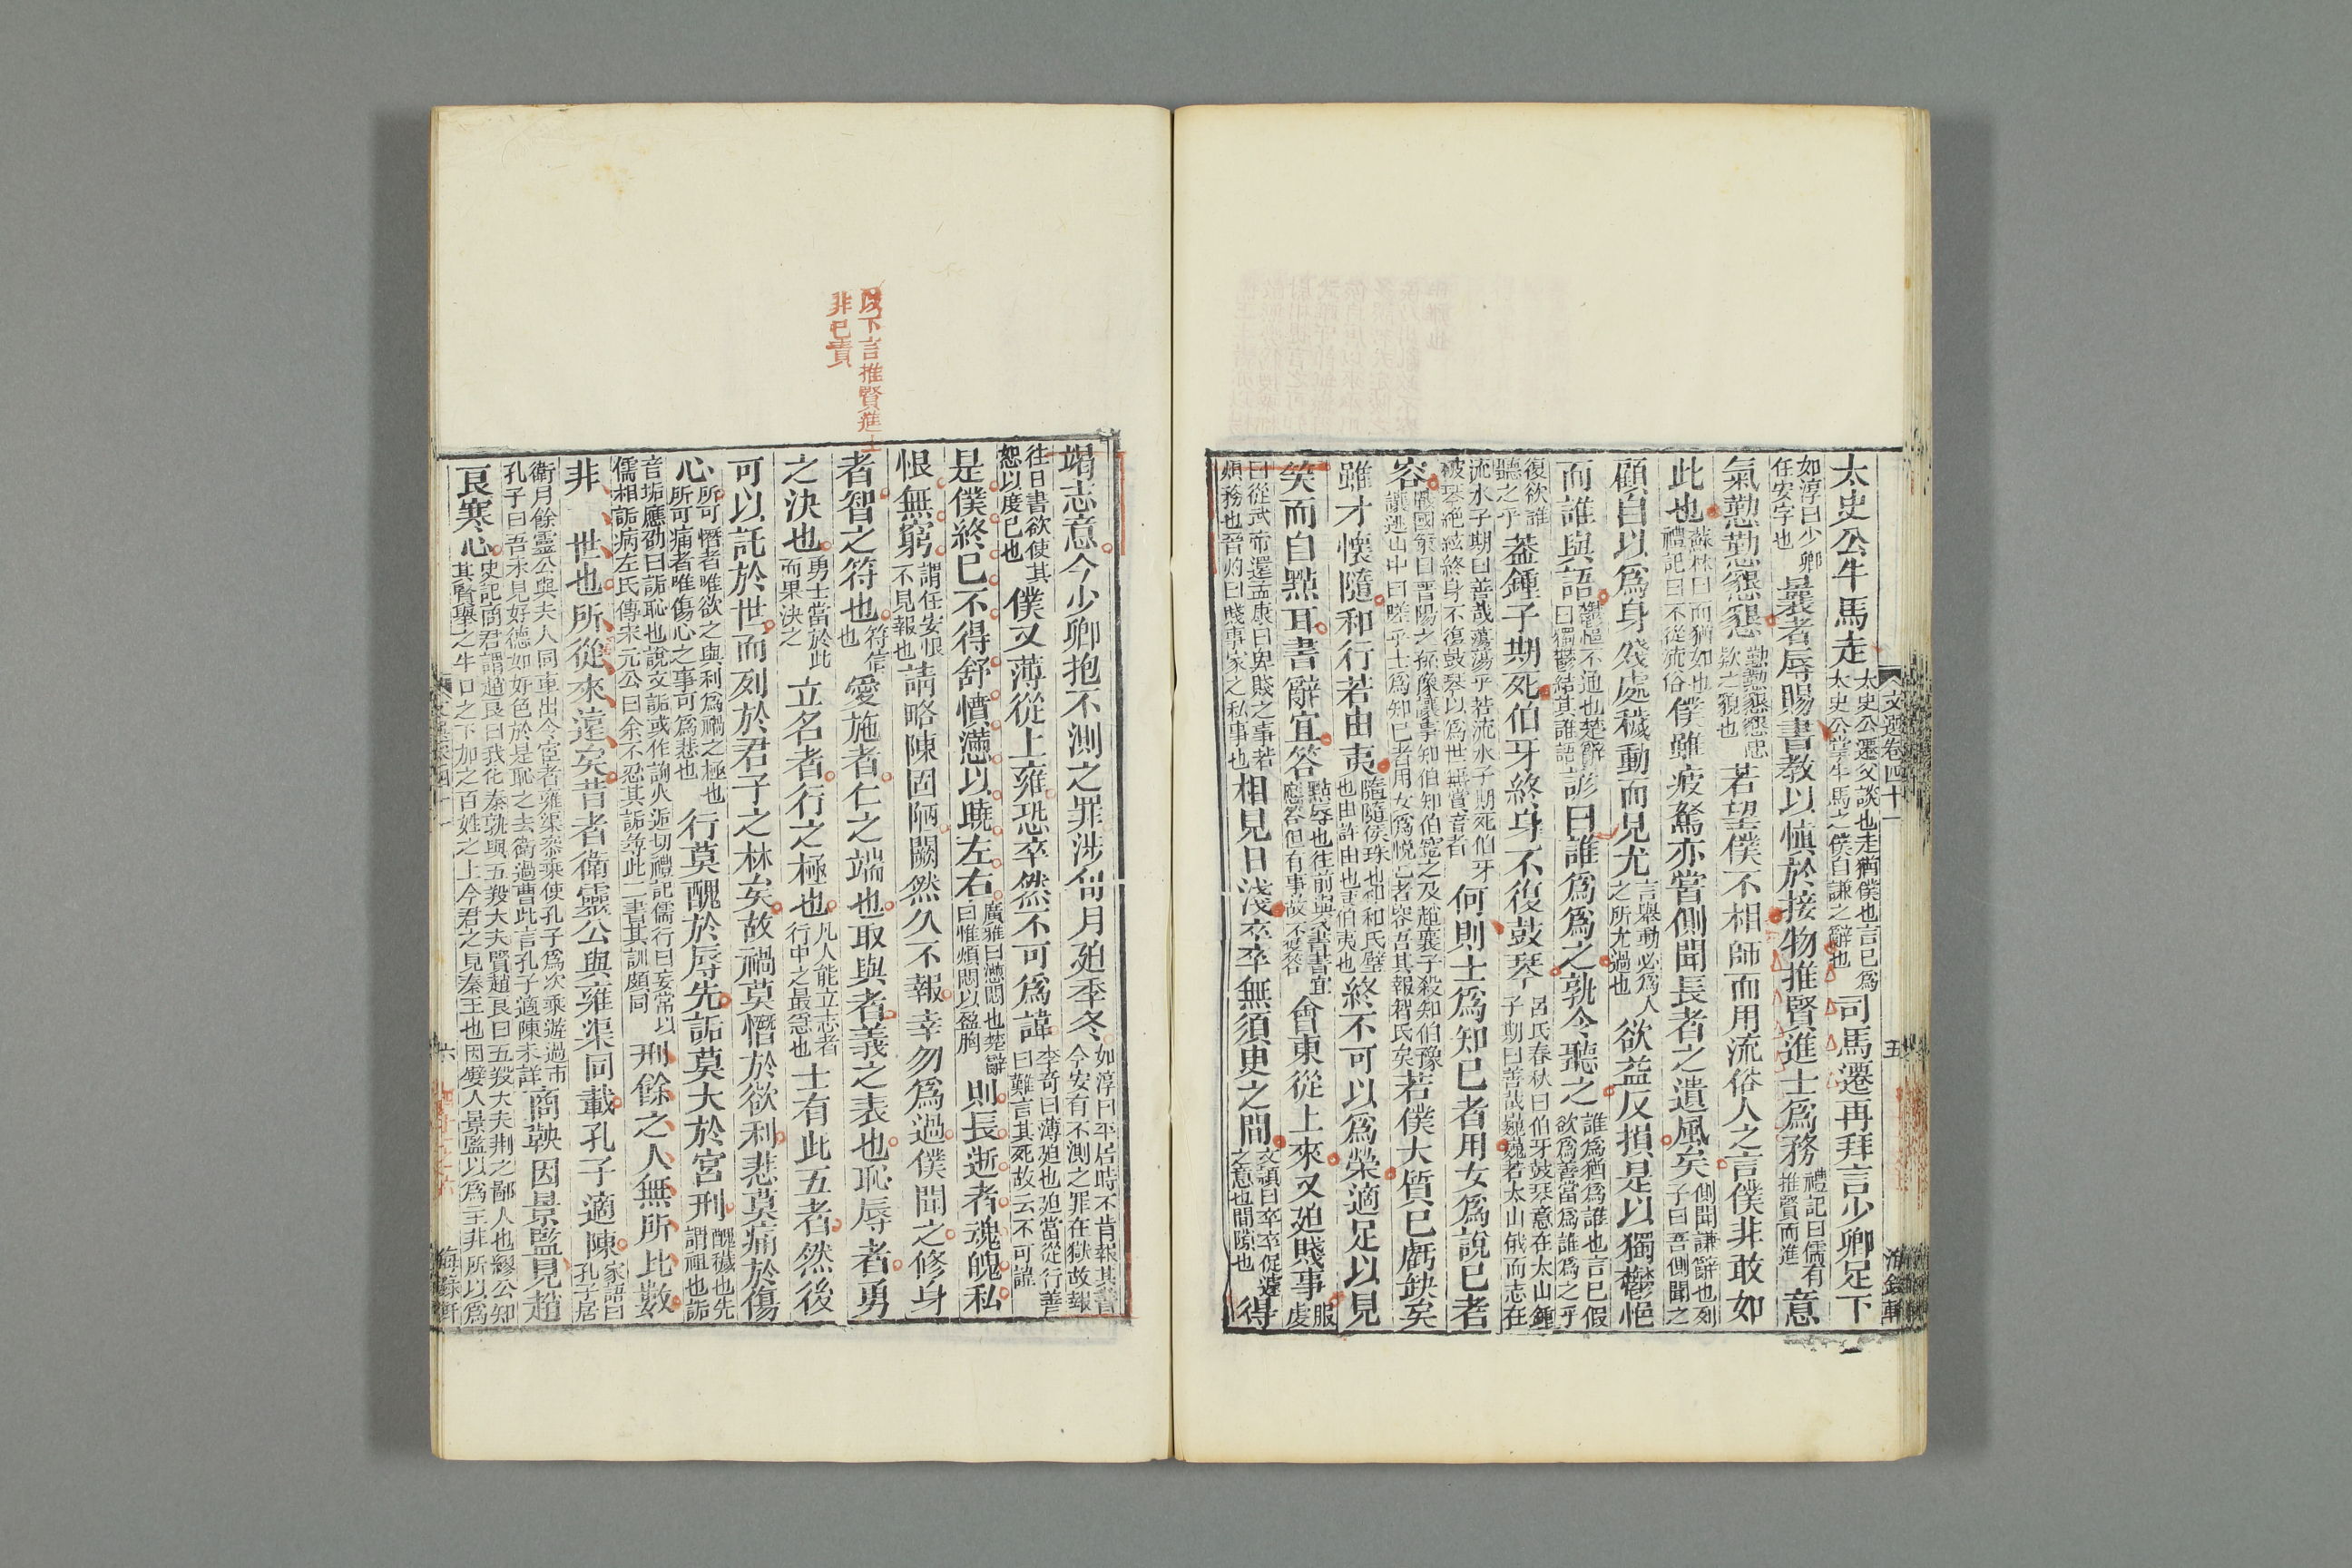 文選卷四十一 五 海錄軒
太史公牛馬走太史公遷父談也走猶僕也言己爲太史公掌牛馬之僕自謙之辭也司馬遷再拜言少卿足下
如淳曰少卿任安字也曩者辱賜書教以愼於接物推賢進士爲務禮記曰儒有推賢而進意
氣懃懃懇懇懃懃懇懇忠款之貌也若望僕不相師而用流俗人之言僕非敢如
此也蘇林曰而猶如也禮記曰不從流俗僕雖疲駑亦嘗側聞長者之遺風矣側聞謙辭也列子曰吾側聞之
顧自以爲身殘處穢動而見尤言舉動必爲人之所尤過也欲益反損是以獨鬱悒
而誰與語鬱悒不通也楚辭曰獨鬱結其誰語諺曰誰爲爲之孰令聽之誰爲猶爲誰也言己假欲爲善當爲誰爲之乎
復欲誰聽之乎葢鍾子期死伯牙終身不復鼓琴呂氏春秋曰伯牙鼓琴意在太山鍾子期曰善哉巍巍若太山俄而志在
流水子期曰善哉蕩蕩乎若流水子期死伯牙破琴絕絃終身不復鼓琴以爲世無賞音者何則士爲知己者用女爲說己者
容戰國策曰晉陽之孫豫讓事知伯知伯寵之及趙襄子殺知伯豫讓逃山中曰嗟乎士爲知己者用女爲悅己者容吾其報智氏矣若僕大質已虧缺矣
雖才懷隨和行若由夷隨隨侯珠也和和氏璧也由許由也夷伯夷也終不可以爲榮適足以見
笑而自點耳書辭宜答點辱也往前與我書書宜應答但有事故不獲答會東從上來又廹賤事服虔
曰從武帝還孟康曰卑賤之事若煩務也晉灼曰賤事家之私事也相見日淺卒卒無須臾之間文穎曰卒卒促遽之意也間隙也得
以下言推賢進士
非己責
竭志意今少卿抱不測之罪涉旬月廹季冬如淳曰平居時不肯報其書今安有不測之罪在獄故報
往日書欲使其恕以度己也僕又薄從上雍恐卒然不可爲諱李奇曰薄廹也廹當從行善曰難言其死故云不可諱
是僕終已不得舒憤懣以曉左右廣雅曰懣悶也楚辭曰惟煩悶以盈胸則長逝者魂魄私
恨無窮謂任安恨不見報也請略陳固陋闕然久不報幸勿爲過僕聞之修身
者智之符也符信也愛施者仁之端也取與者義之表也恥辱者勇
之決也勇士當於此而果決之立名者行之極也凡人能立志者行中之最急也士有此五者然後
可以託於世而列於君子之林矣故禍莫憯於欲利悲莫痛於傷
心所可憯者唯欲之與利爲禍之極也所可痛者唯傷心之事可爲悲也行莫醜於辱先詬莫大於宮刑醜穢也先謂祖也詬
音垢應劭曰詬恥也說文詬或作訽火逅切禮記儒行曰妄常以儒相詬病左氏傳宋元公曰余不忍其詬等此二書其訓頗同刑餘之人無所比數
非一世也所從來遠矣昔者衛靈公與雍渠同載孔子適陳家語曰孔子居
衛月餘靈公與夫人同車出令宦者雍渠參乘使孔子爲次乘遊過市孔子曰吾未見好德如好色於是恥之去衛過曹此言孔子適陳未詳商鞅因景監見趙
良寒心史記商君謂趙良曰我化秦孰與五羖大夫賢趙良曰五羖大夫荆之鄙人也繆公知其賢舉之牛口之下加之百姓之上今君之見秦王也因嬖人景監以爲主非所以爲
文選卷四十一 六 海錄軒